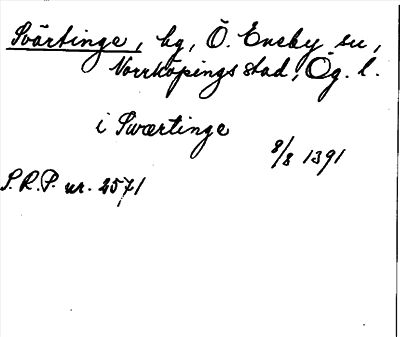 Svärtinge, by, Ö. Eneby sn,
Norrköpings stad, Ög. l.
i Swærtinge
8/8 1391
S.R.P. nr. 2571